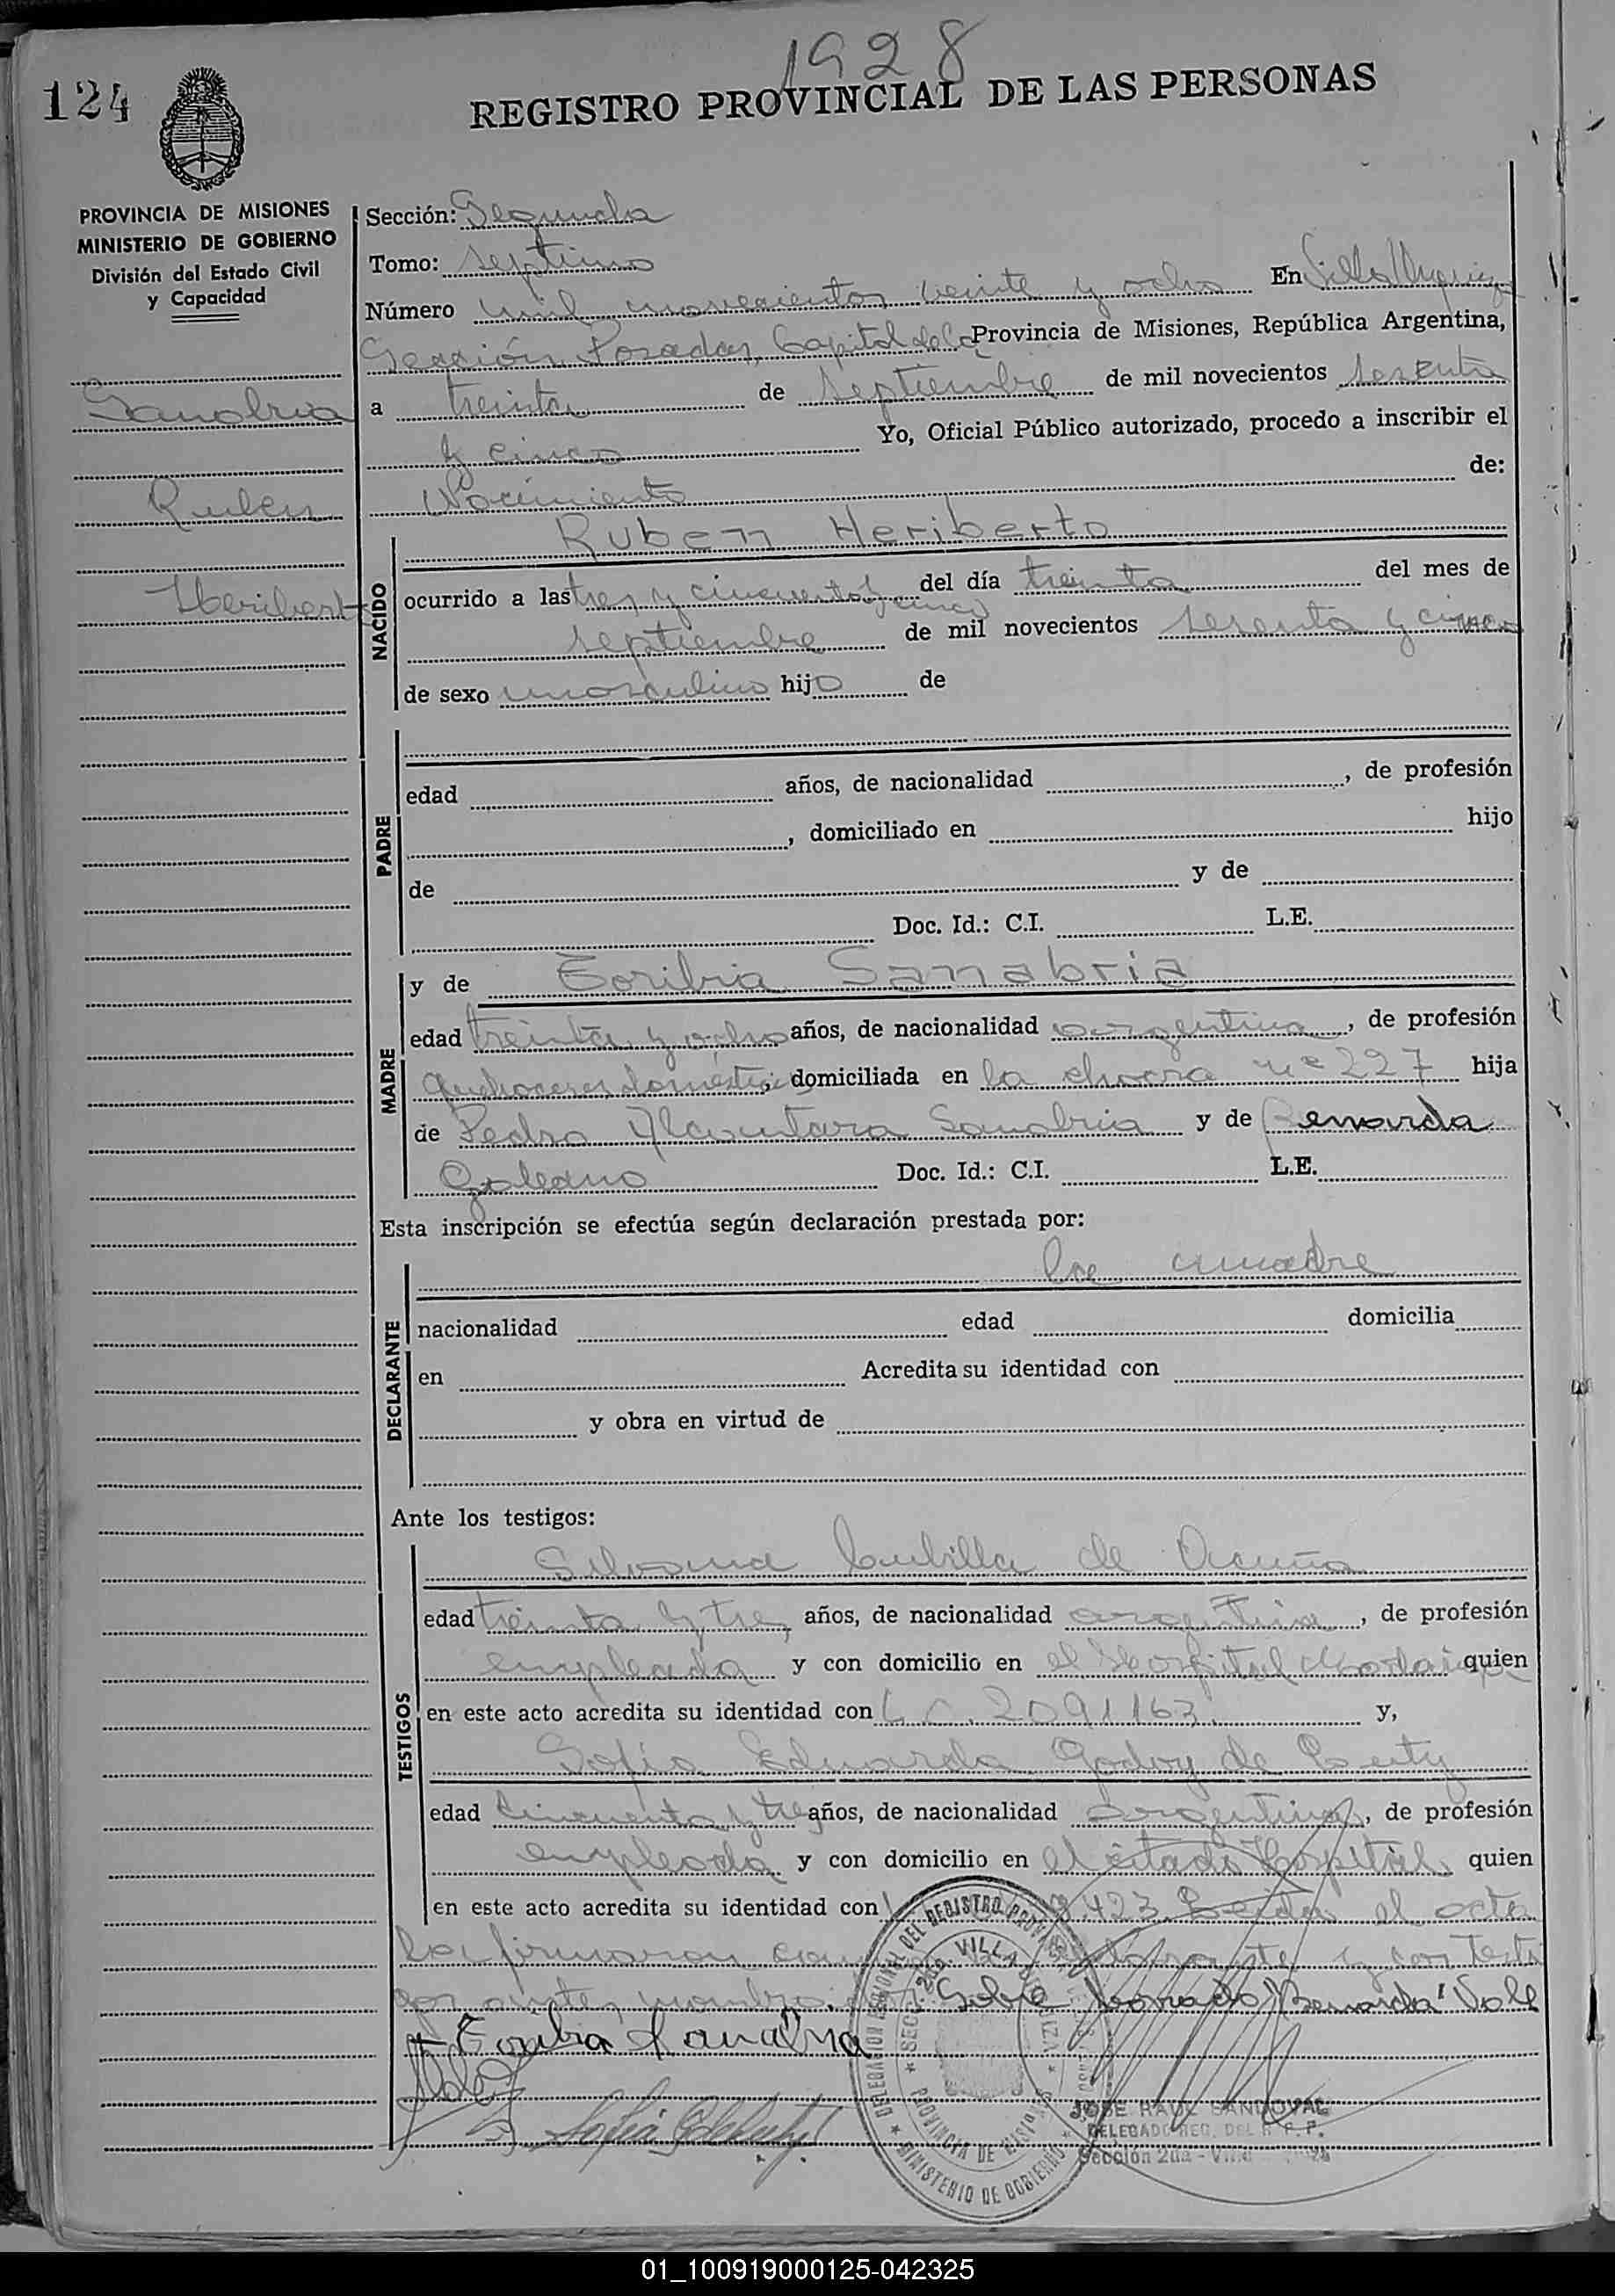 1928
124
REGISTRO PROVINCIAL DE LAS PERSONAS
PROVINCIA DE MISIONES
MINISTERIO DE GOBIERNO
División del Estado Civil
y Capacidad
Sanabria
Ruben
Heriberto
Sección: Segunda
Tomo: septimo
Número mil novecientos veinte y ocho En Villa Urquiza
Sección Posadas, Capital de la Provincia de Misiones, República Argentina,
a treinta de septiembre de mil novecientos sesenta
y cinco Yo, Oficial Público autorizado, procedo a inscribir el
Nacimiento de:
NACIDO
Ruben Heriberto
ocurrido a las tres y cincuenta y cinco del día treinta del mes de
septiembre de mil novecientos sesenta y cinco
de sexo masculino hijo de
PADRE
edad años, de nacionalidad , de profesión
, domiciliado en hijo
de y de
Doc. Id.: C.I. L.E.
MADRE
y de Toribia Sanabria
edad treinta y ocho años, de nacionalidad argentina, de profesión
quehaceres domesticos domiciliada en la chacra nº 227 hija
de Pedro Alcantara Sanabria y de Bernarda
Galeano Doc. Id.: C.I. L.E.
Esta inscripción se efectúa según declaración prestada por:
DECLARANTE
la madre
nacionalidad edad domicilia
en Acredita su identidad con
y obra en virtud de
Ante los testigos:
TESTIGOS
Silvana Cubilla de Acuña
edad treinta y tres años, de nacionalidad argentina, de profesión
empleada y con domicilio en el Hospital quien
en este acto acredita su identidad con L.C. 2091163 y,
Sofia Eduarda Godoy de
edad cincuenta y tres años, de nacionalidad argentina, de profesión
empleada y con domicilio en el citado Hospital quien
en este acto acredita su identidad con 423 Leida el acta
la firmaron y los testi
gos Sobre borrado "Bernarda" Vale
Toribia Sanabria
Sofia
DELEGACION REGIONAL DEL REGISTRO PROVINCIAL
SECC. 2da. VILLA URQUIZA
PROVINCIA DE MISIONES
MINISTERIO DE GOBIERNO
JOSE RAUL SANDOVAL
DELEGADO REG. DEL R. P. P.
Sección 2da - Villa
01_100919000125-042325